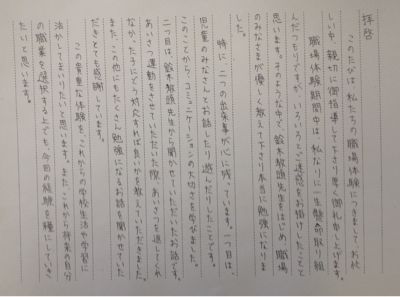 拝啓
このたびは、私たちの職場体験につきまして、お忙
しい中、親切に御指導して下さり厚く御礼申し上げます。
職場体験期間中は、私なりに一生懸命取り組
んだつもりですが、いろいろとご迷惑をお掛けしたことと
思います。そのような中で、鈴木教頭先生をはじめ、職場
のみなさまが優しく教えて下さり本当に勉強になりま
した。
特に、二つの出来事が心に残っています。一つ目は、
児童のみなさんとお話したり遊んだりしたことです。
このことから、コミュニケーションの大切さを学びました。
二つ目は、鈴木教頭先生から聞かせていただいたお話です。
あいさつ運動をさせていただいた際、あいさつを返してくれ
なかった子にどう対応すれば良いかを教えていただきました。
また、この他にもたくさん勉強になるお話を聞かせていた
だきとても感謝してます。
この貴重な体験を、これからの学校生活や学習に
活かしてまいりたいと思います。また、これから将来の自分
の職業を選択する上でも、今回の経験を糧にしていき
たいと思います。